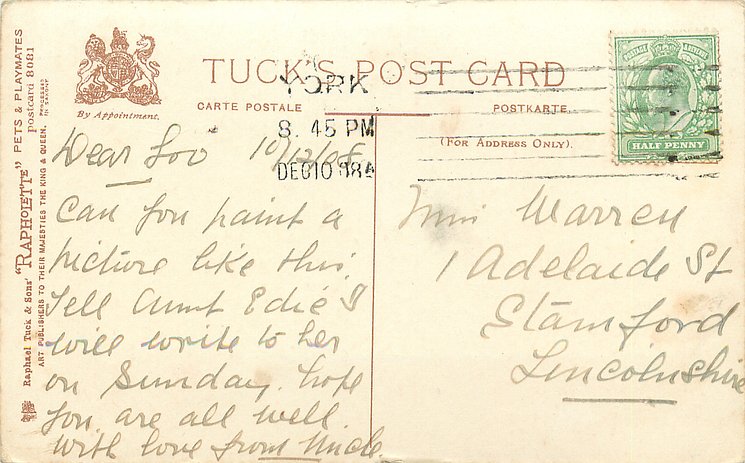 TUCK'S POST CARD
CARTE POSTALE
POSTKARTE.
(FOR ADDRESS ONLY).
By Appointment.
Raphael Tuck & Sons' "RAPHOLETTE" PETS & PLAYMATES
postcard 8081
ART PUBLISHERS TO THEIR MAJESTIES THE KING & QUEEN.
YORK
8. 45 PM
DEC 10 08
POSTAGE REVENUE
HALF PENNY
Dear Loo 10/12/08
Can you paint a
picture like this.
Tell Aunt Edie I
will write to her
on Sunday. hope
you are all well.
With love from Uncle.
Miss Warren
1 Adelaide St
Stamford
Lincolnshire